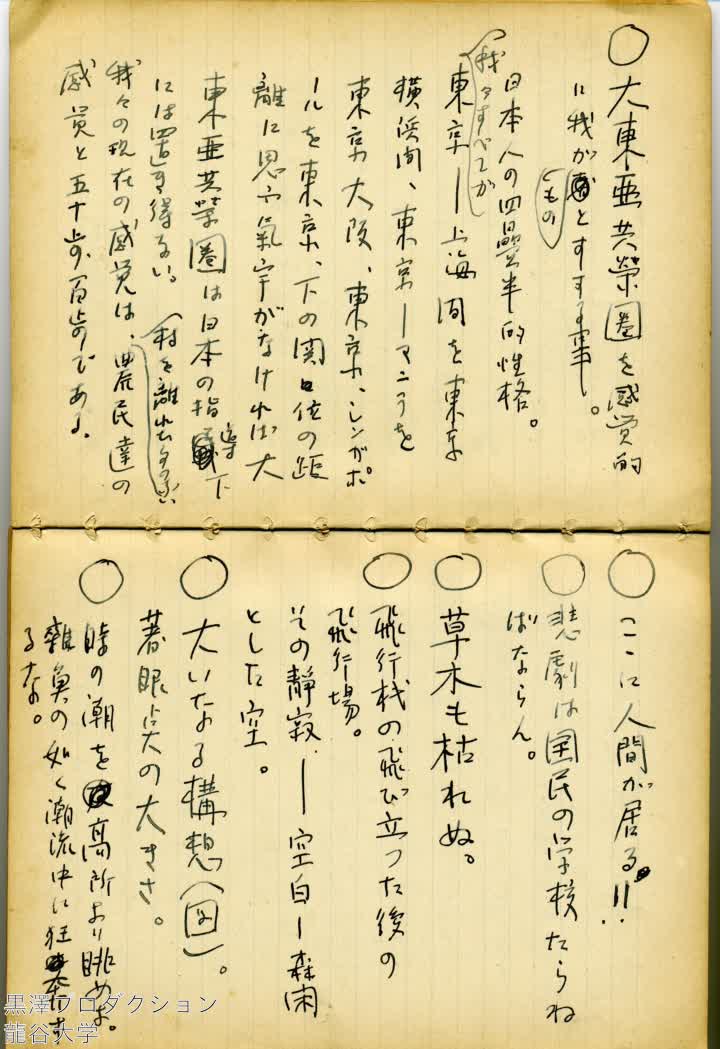 ○大東亜共榮圏を感覚的
に我がものとする事。
日本人の四畳半的性格。
(我々すべてが
東京ー上海間を東京
横浜間、東京ーマニラを
東京大阪、東京、シンガポ
ールを東京、下の関位の距
離に思ふ氣宇がなければ大
東亜共榮圏は日本の指導下
には置き得ない。
(村を離れたすのない
我々の現在の感覚は、農民達の
感覚と五十歩百歩である。
○ここに人間が居る!!
○悲劇は国民の学校たらね
ばならん。
○草木も枯れぬ。
○飛行機の飛び立つた後の
飛行場。
その静寂ー空白ー森閑
とした空。
○大いなる構想(図)。
着眼点の大きさ。
○時の潮を高所より眺めよ。
雜魚の如く潮流中に狂奔す
るな。
黒澤プロダクション
龍谷大学